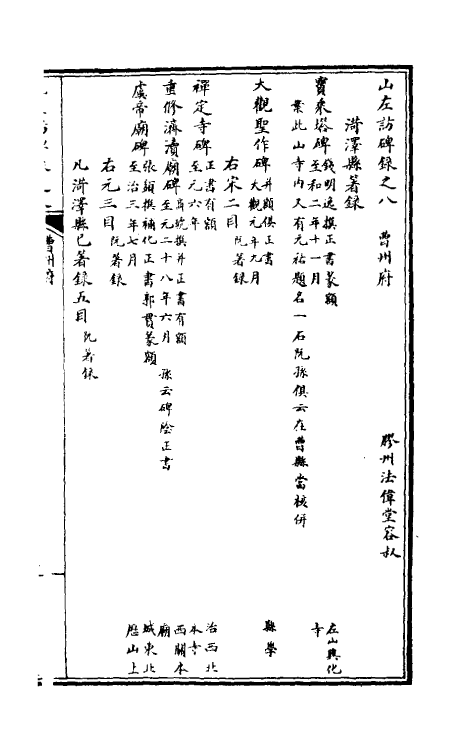 山左訪碑錄之八　曹州府　膠州法偉堂容叔
菏澤縣著錄
寶乘塔碑　錢明逸撰正書篆額　至和二年十一月　左山興化寺
案此山寺内又有元祐題名一石阮孫俱云在曹縣當核併
大觀聖作碑　并額俱正書　大觀元年九月　縣學
右宋二目　阮著錄
禪定寺碑　正書有額　至元六年　治西北本寺
重修濟瀆廟碑　撰并正書有額　至元二十八年六月　孫云碑陰正書　西關本廟
虞帝廟碑　張頴撰補化正書郭貫篆額　至治三年七月　城東北歷山上
右元三目　阮著錄
凡菏澤縣已著錄五目　阮著錄
曹州府